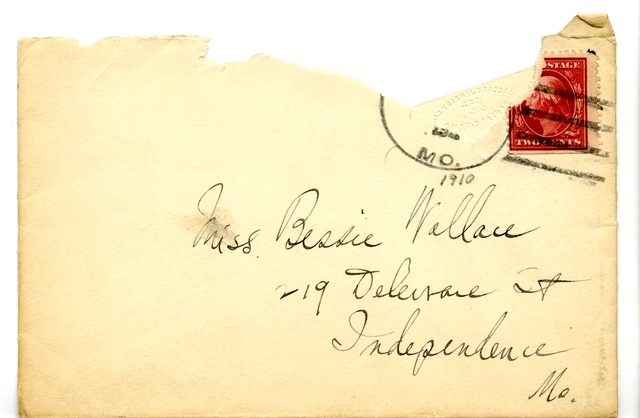 STAGE
TWO CENTS
MO.
1910
Miss. Bessie Wallace
219 Deleware St
Independence
Mo.